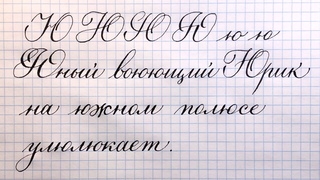 Ю Ю Ю Ю ю ю
Юный воюющий Юрик
на южном полюсе
улюлюкает.